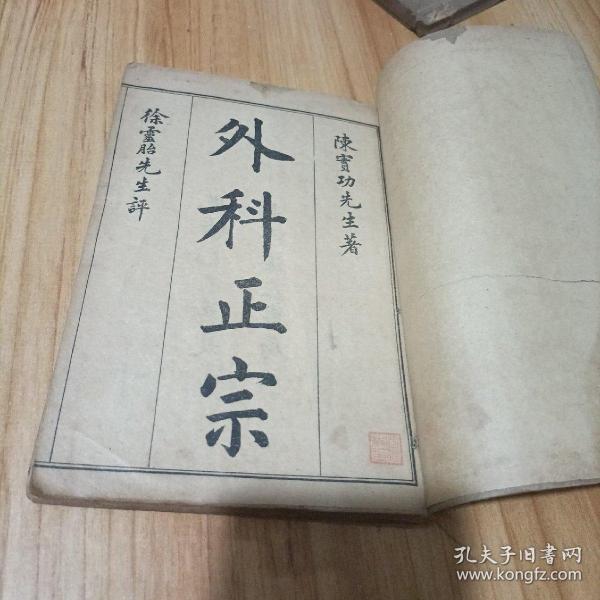 陳實功先生著
外科正宗
徐靈胎先生評
孔夫子旧书网
www.kongfz.com